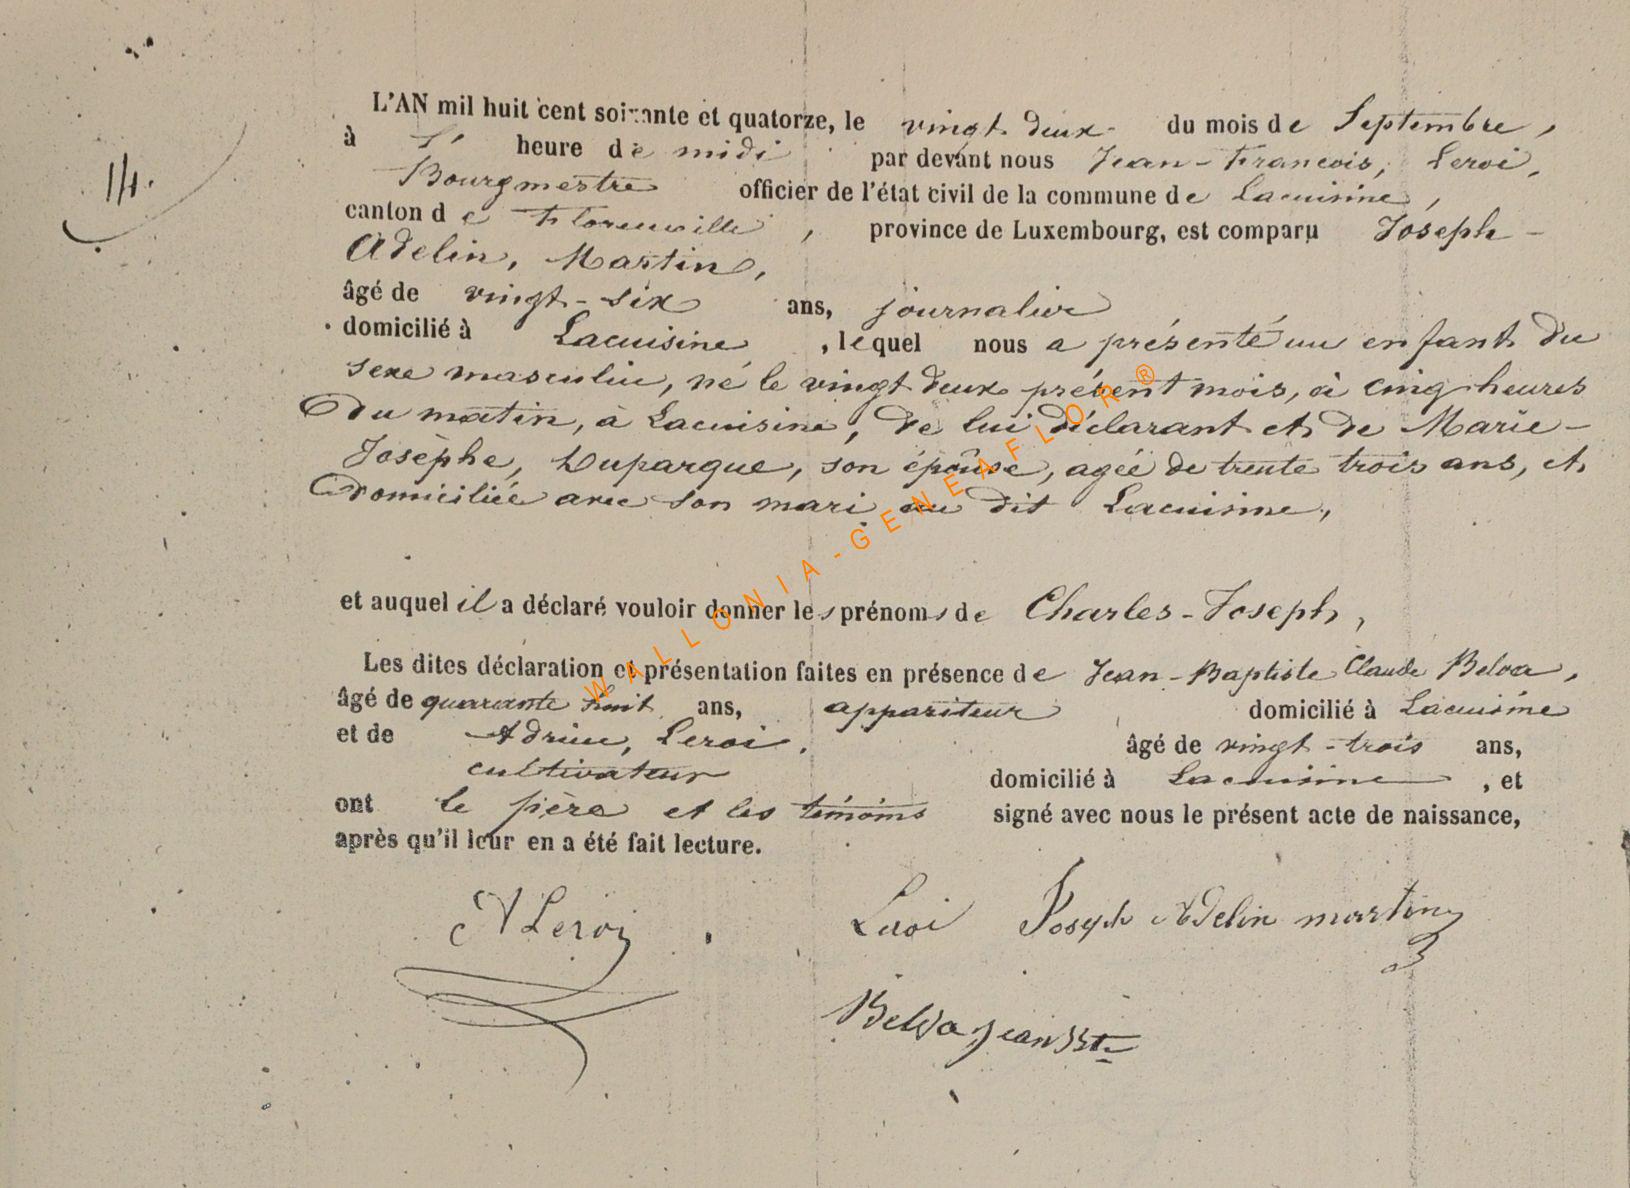 14.
L'AN mil huit cent soixante et quatorze, le vingt deux du mois de Septembre,
à heure de midi par devant nous Jean-Francois, Leroi,
Bourgmestre officier de l'état civil de la commune de Lacuisine,
canton de Florenville, province de Luxembourg, est comparu Joseph-
Adelin, Martin,
âgé de vingt-six ans, journalier
domicilié à Lacuisine, lequel nous a présenté un enfant du
sexe masculin, né le vingt deux présent mois, à cinq heures
du matin, à Lacuisine, de lui déclarant et de Marie-
Josèphe, Duparque, son épouse, agée de trente trois ans, et
domiciliée avec son mari au dit Lacuisine,
et auquel il a déclaré vouloir donner les prénoms de Charles-Joseph,
Les dites déclaration et présentation faites en présence de Jean-Baptiste Claude Belva,
âgé de quarante huit ans, appariteur domicilié à Lacuisine
et de Adrien, Leroi, âgé de vingt-trois ans,
cultivateur domicilié à Lacuisine, et
ont le pière et les témoins signé avec nous le présent acte de naissance,
après qu'il leur en a été fait lecture.
A Leroi Leroi Joseph Adelin martin
Belva Jean Bte
WALLONIA-GENEAFLOR®